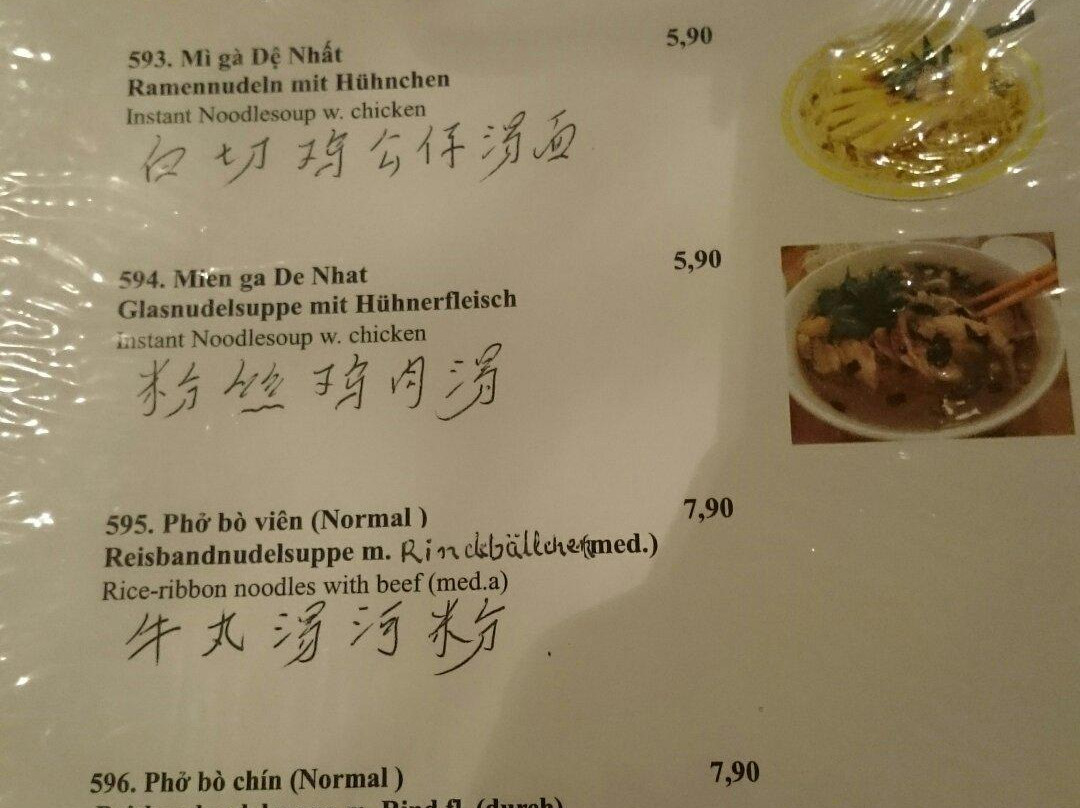 593. Mì gà Dệ Nhất 5,90
Ramennudeln mit Hühnchen
Instant Noodlesoup w. chicken
白切鸡公仔汤面
594. Mien ga De Nhat 5,90
Glasnudelsuppe mit Hühnerfleisch
Instant Noodlesoup w. chicken
粉丝鸡肉汤
595. Phở bò viên (Normal ) 7,90
Reisbandnudelsuppe m. Rindsbällchen(med.)
Rice-ribbon noodles with beef (med.a)
牛丸汤河粉
596. Phở bò chín (Normal ) 7,90
Reisbandnudelsuppe m. Rind.fl. (durch)